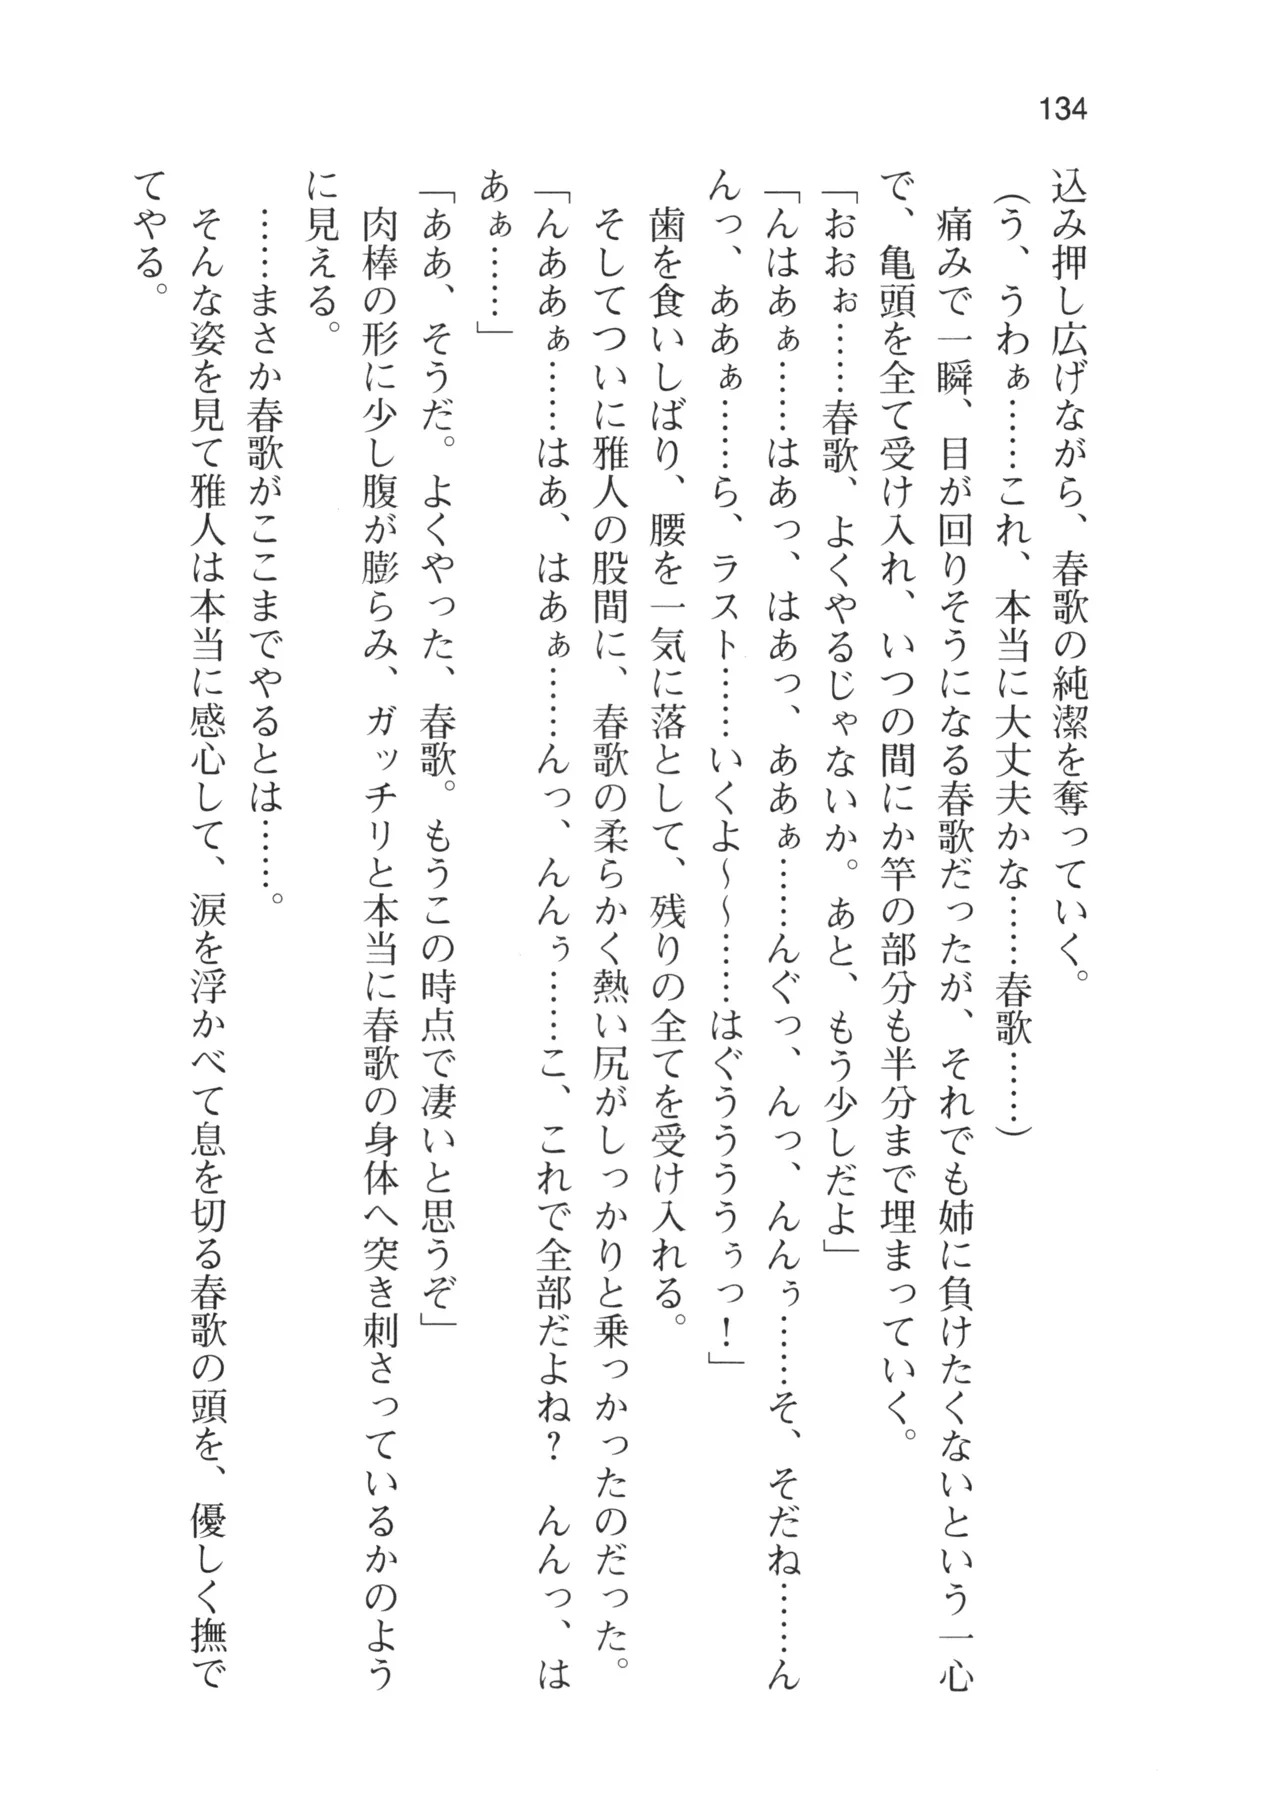 134
込み押し広げながら、春歌の純潔を奪っていく。
（う、うわぁ……これ、本当に大丈夫かな……春歌……）
痛みで一瞬、目が回りそうになる春歌だったが、それでも姉に負けたくないという一心
で、亀頭を全て受け入れ、いつの間にか竿の部分も半分まで埋まっていく。
「おおぉ……春歌、よくやるじゃないか。あと、もう少しだよ」
「んはあぁ……はあっ、はあっ、ああぁ……んぐっ、んっ、んんぅ……そ、そだね……ん
んっ、ああぁ……ら、ラスト……いくよ～～……はぐうううぅっ！」
歯を食いしばり、腰を一気に落として、残りの全てを受け入れる。
そしてついに雅人の股間に、春歌の柔らかく熱い尻がしっかりと乗っかったのだった。
「んああぁ……はあ、はあぁ……んっ、んんぅ……こ、これで全部だよね？　んんっ、は
あぁ……」
「ああ、そうだ。よくやった、春歌。もうこの時点で凄いと思うぞ」
肉棒の形に少し腹が膨らみ、ガッチリと本当に春歌の身体へ突き刺さっているかのよう
に見える。
……まさか春歌がここまでやるとは……。
そんな姿を見て雅人は本当に感心して、涙を浮かべて息を切る春歌の頭を、優しく撫で
てやる。